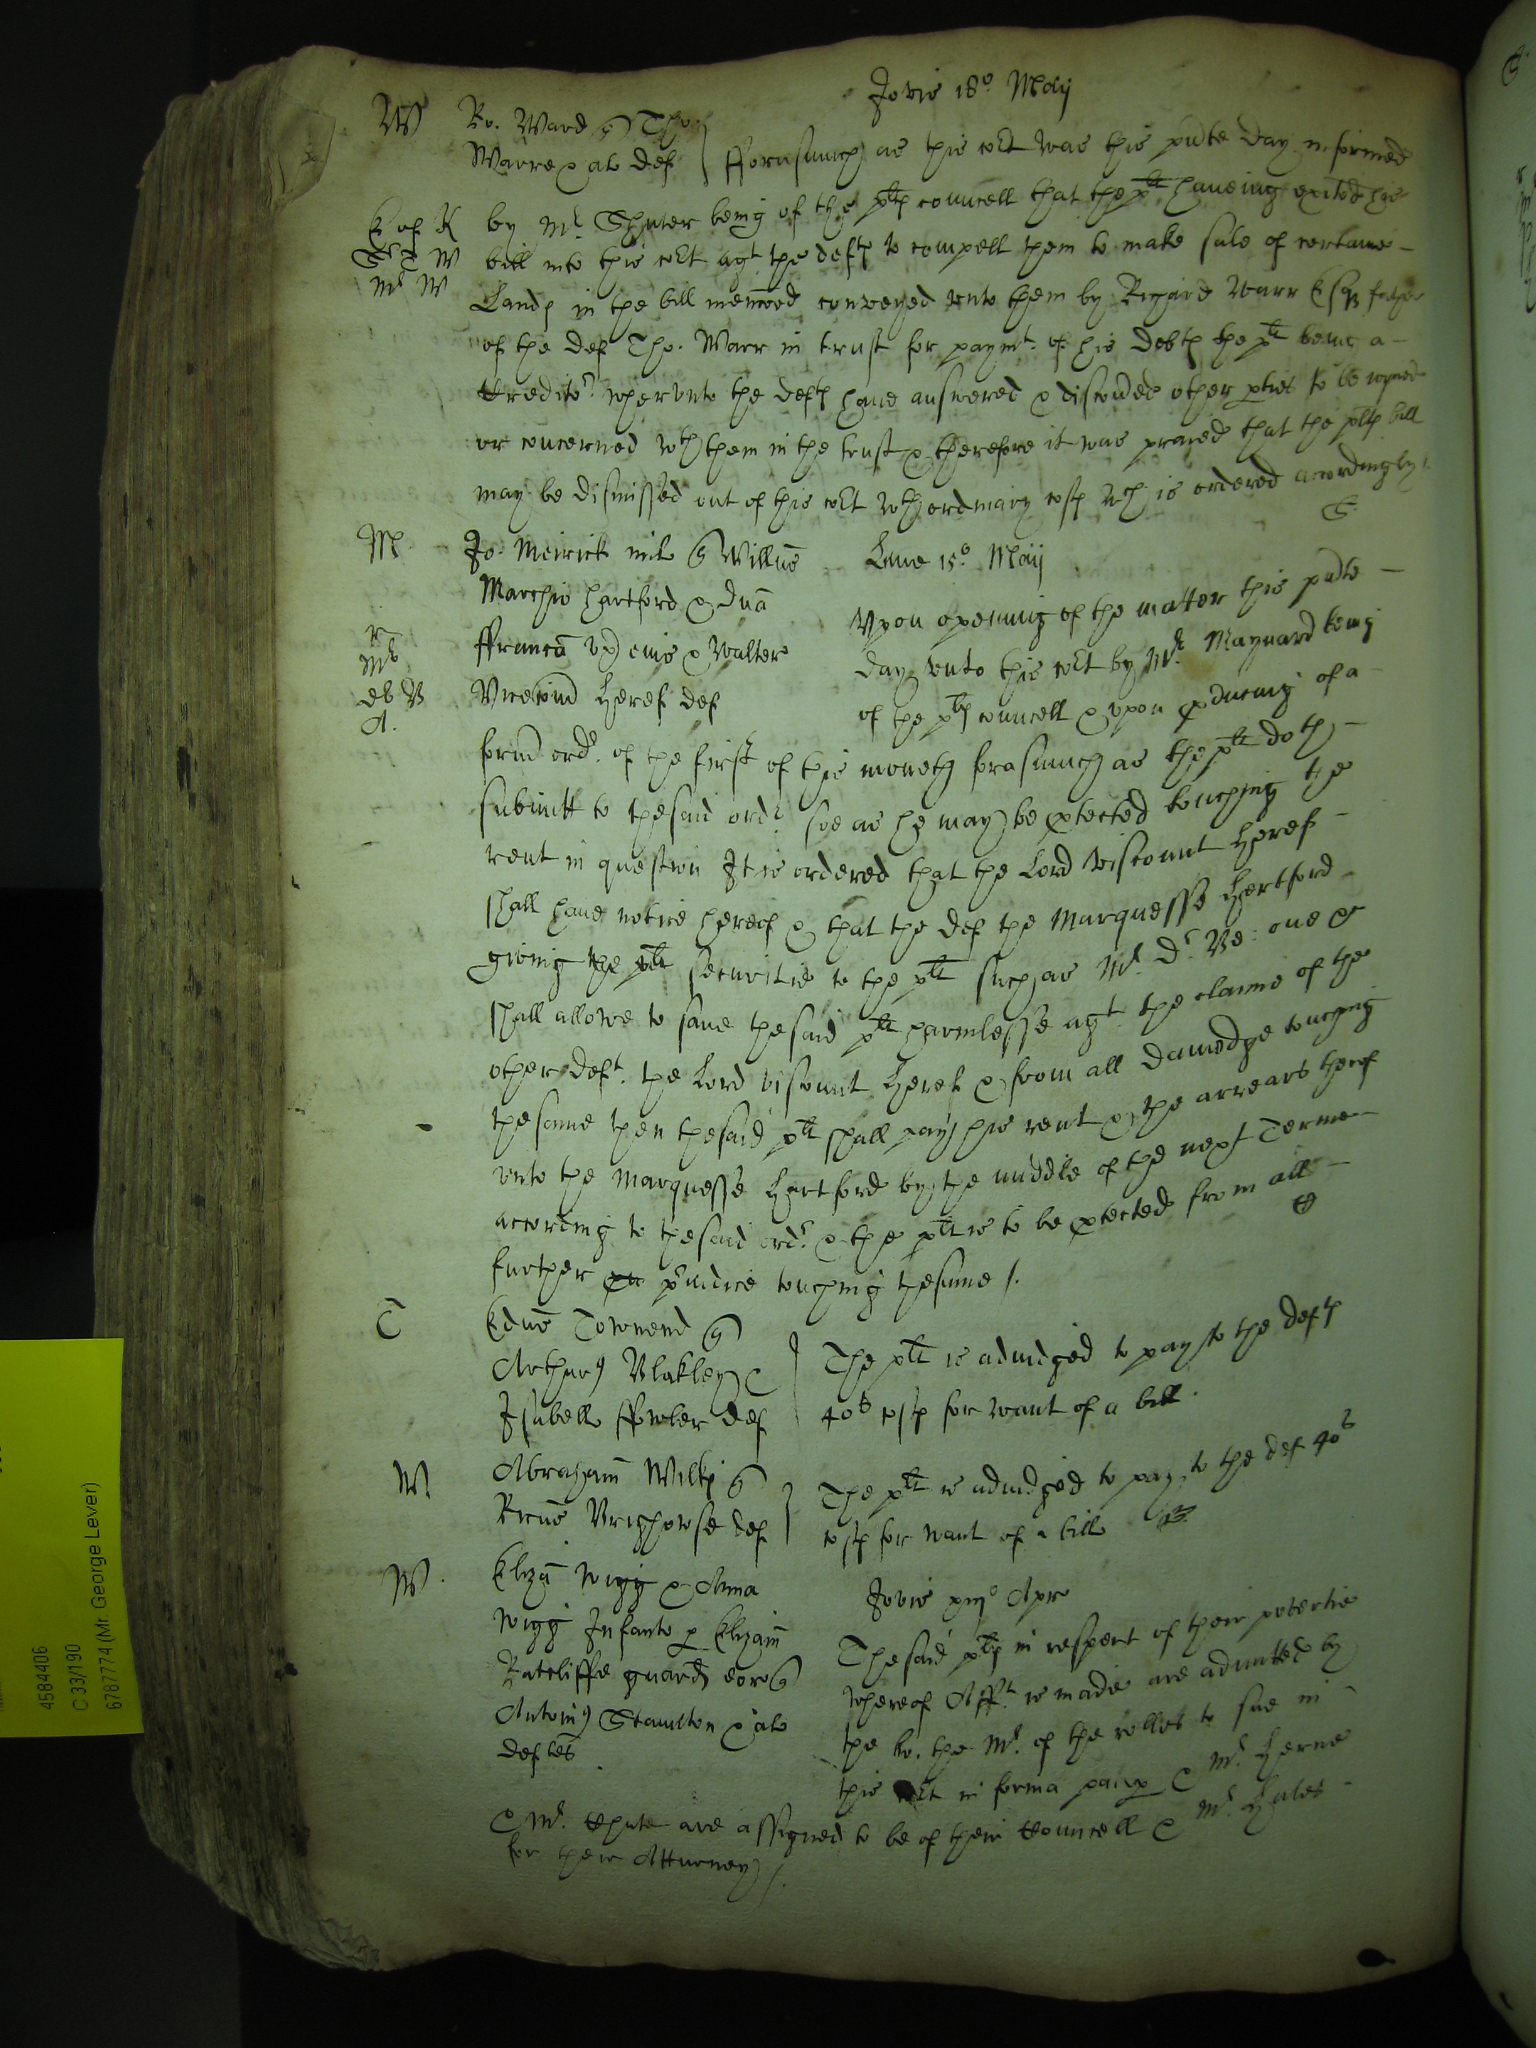 Jovis 18o Maij
W Ro. Ward q Tho.
Warre & al def fforasmuch as this cort was this pnte day informed
E of K by Mr Shuter being of the pltes councell that the plt haveing exited his
Sr T W bill into this cort agt the deftes to compell them to make sale of certaine
Mr W
Landes in the bill menconed conveyed unto them by Richard Warr Esqr father
of the def Tho. Warr in trust for paymt of his debtes the plt being a
Creditor wherunto the deftes have answered & discovered other pties to be ioyned
or concerned wth them in the trust & therefore it was prayed that the pltes bill
may be dismissed out of this cort wth ordinary costes wch is ordered accordingly
M Jo. Meirick mil q Willus Lune 15o Maij
Marchio Hartford & dna
ffrancs ux eius & Walter Upon opening of the matter this pnte
Vicecom Heref def day unto this cort by Mr Maynard being
of the pltes councell & upon pducing of a
form ordr of the first of this moneth forasmuch as the plt doth
submitt to the said ordr soe as he may be ptected touching the
rent in question It is ordered that the Lord Viscount Heref
shall have notice hereof & that the def the Marquesse Hertford
giving the plt securitie to the plt such as Mr Dr
shall allowe to save the said plt harmlesse agt the claime of the
other deft the Lord viscount Heref & from all damedge touching
the same then the said plt shall pay his rent & the arrears therof
unto the Marquesse Hartford by the middle of the next Terme
according to the said ordr & the plt is to be ptected from all
further priudice touching the same /.
T Edus Townend q
Arthur Blakley & The plt is adiudged to pay to the deftes
Isabell ffowler def 40s costes for want of a bill
W. Abraham Wilkes q The plt is adiudged to pay to the def 40s
Ricus Brighowse def costes for want of a bill
W. Eliza Wigg & Anna Jovis Apr
Wigg Infants p Elizam The said pltes in respect of their povertie
Ratcliffe guard eor q whereof Afft is made are admitted by
Antoni Staunton & al the ho. the Mr of the rolles to sue in
deftes this cort in forma paup & Mr Herne
& Mr Chute are assigned to be of their Councell & Mr Hales
for their Atturney /.
4584406
C 33/190
6787774 (Mr. George Lever)